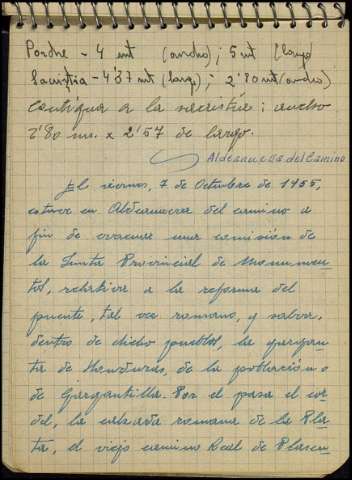 Pondre - 4 mt (ancho); 5 mt (largo
Sacristia - 4'37 mt (larg); 2'80 mt (ancho)
Contigua a la sacristía; ancho
2'80 ms. x 2'57 de largo.
Aldeanueva del Camino
El viernes, 7 de Octubre de 1955,
estuve en Aldeanueva del camino a
fin de evacuar una comisión de
la Junta Provincial de Monumen-
tos, relativa a la reforma del
puente, tal vez romano, y salva,
dentro de dicho pueblo, la gargan-
ta de Honduras, de la población o
de Gargantilla. Por el pasa el cor
del, la calzada romana de la Pla-
ta, el viejo camino Real de Plasen